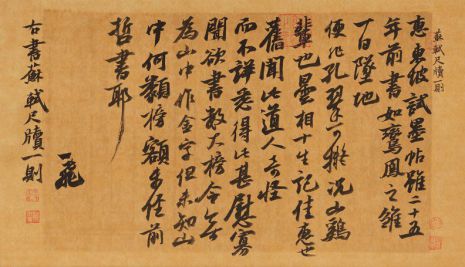 蘇軾尺牘一則
惠東坡試墨帖雖二十五
年前書如鸞鳳之雛
一日墜地
便非孔翠可擬況山鷄
輩也曇相十生記佳惠也
舊聞此道人奇怪
而不詳悉得此甚慰寡
聞欲書數大榜今若
為山中作金字但未知山
中何額榜額多怪前
哲書耶
古書蘇軾尺牘一則